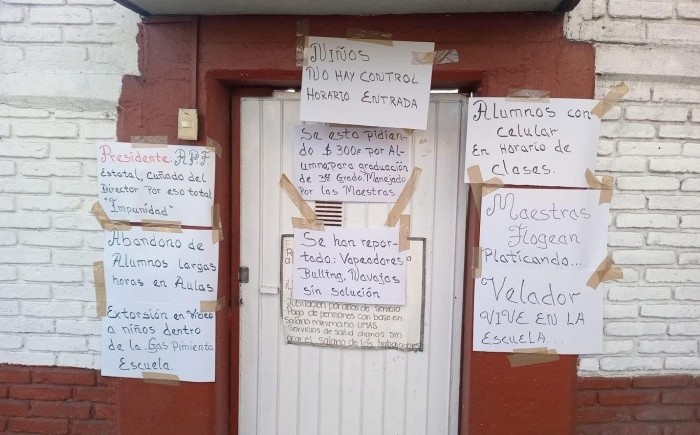 Niños
No hay control
Horario entrada
Presidente. A.P.F
Estatal, cuñado del
Director por eso total
"Impunidad"
Abandono de
Alumnos largas
horas en Aulas.
Extorsión en video
a niños dentro
de la Gas Pimienta
Escuela.
Se esta pidien-
do $300 por Al-
umno, para graduación
de 3er Grado. Manejado
Por las Maestras
Se han repor-
tado: Vapeadores
Bulling, Navajas
sin solución
Jubilación por años de servicio
Pago de pensiones con base en
salario minimo no UMAS
Servicios de salud dignos, sin
el salario de los trabajadores
Alumnos con
celular
En Horario de
clases.
Maestras
Flogean
Platicando...
Velador
VIVE EN LA
Escuela...